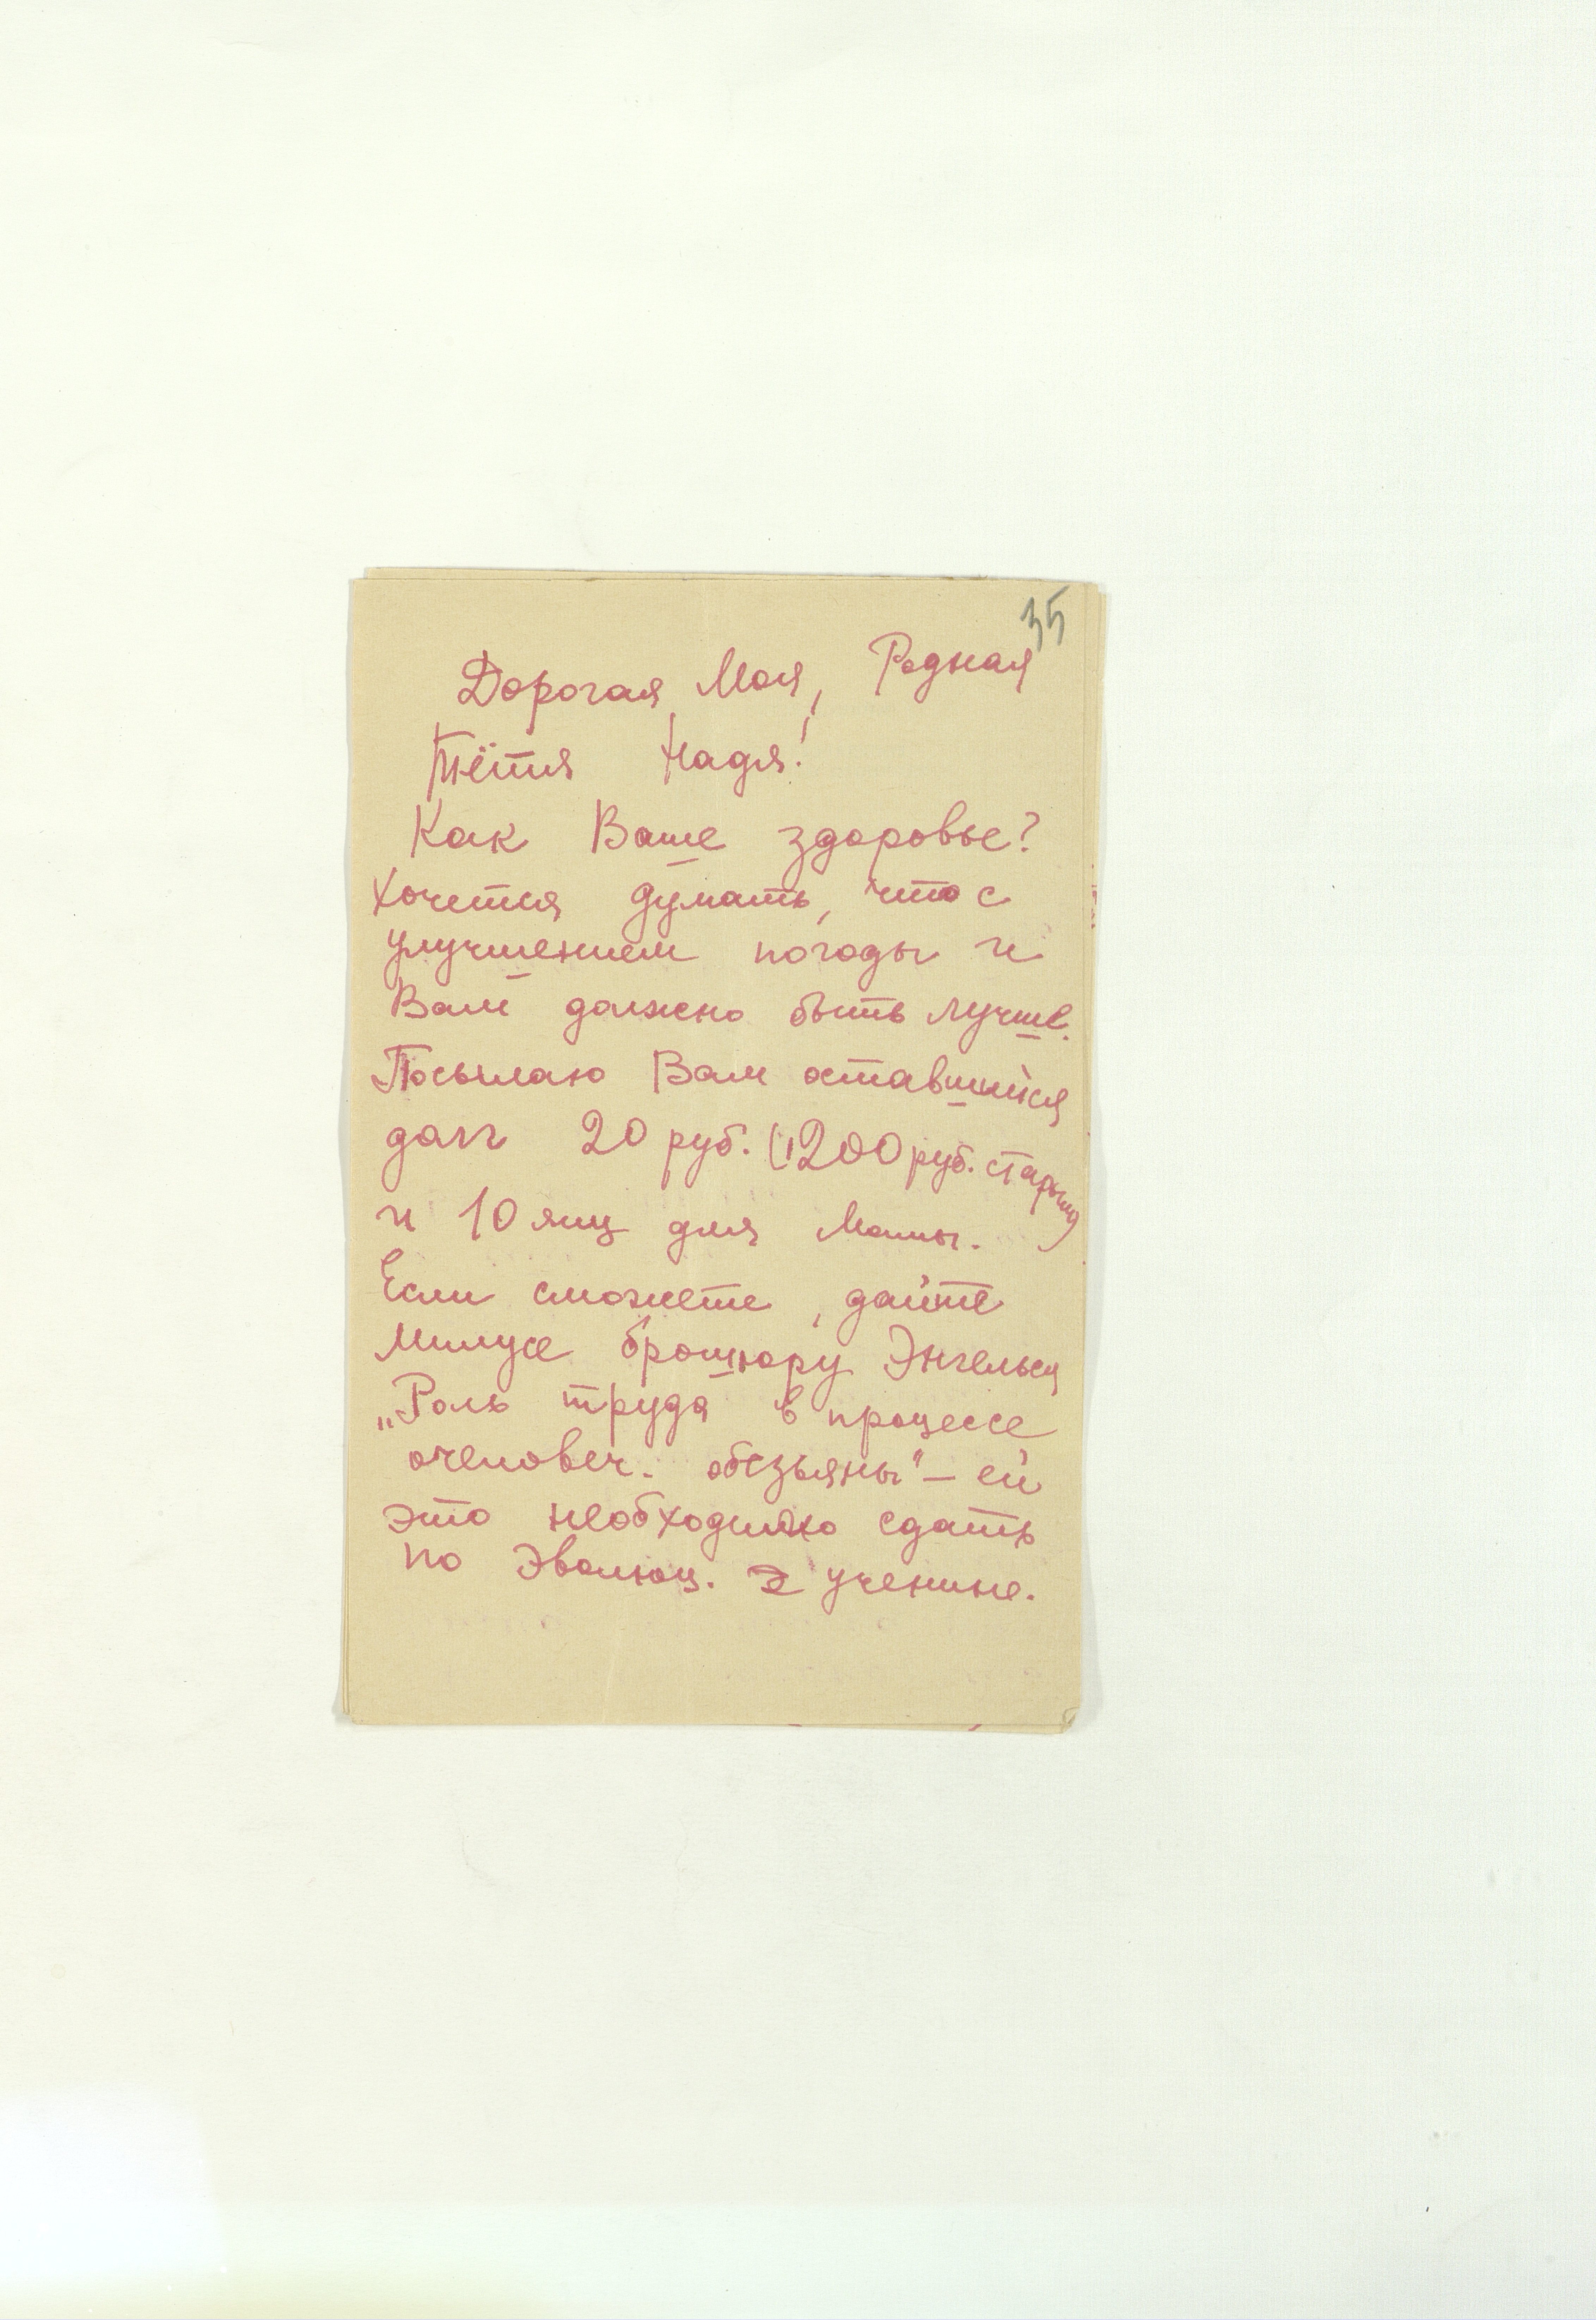 35
Дорогая, Моя, Родная
Тётя Надя!
Как Ваше здоровье?
Хочется думать, что с
улучшением погоды и
Вам должно быть лучше.
Посылаю Вам оставшийся
долг 20 руб. (200 руб. старыми)
и 10 яиц для Мамы.
Если сможете, дайте
Милусе брошюру Энгельса
„Роль труда в процессе
очеловеч. обезьяны" — ей
это необходимо сдать
по Эволюц. учению.